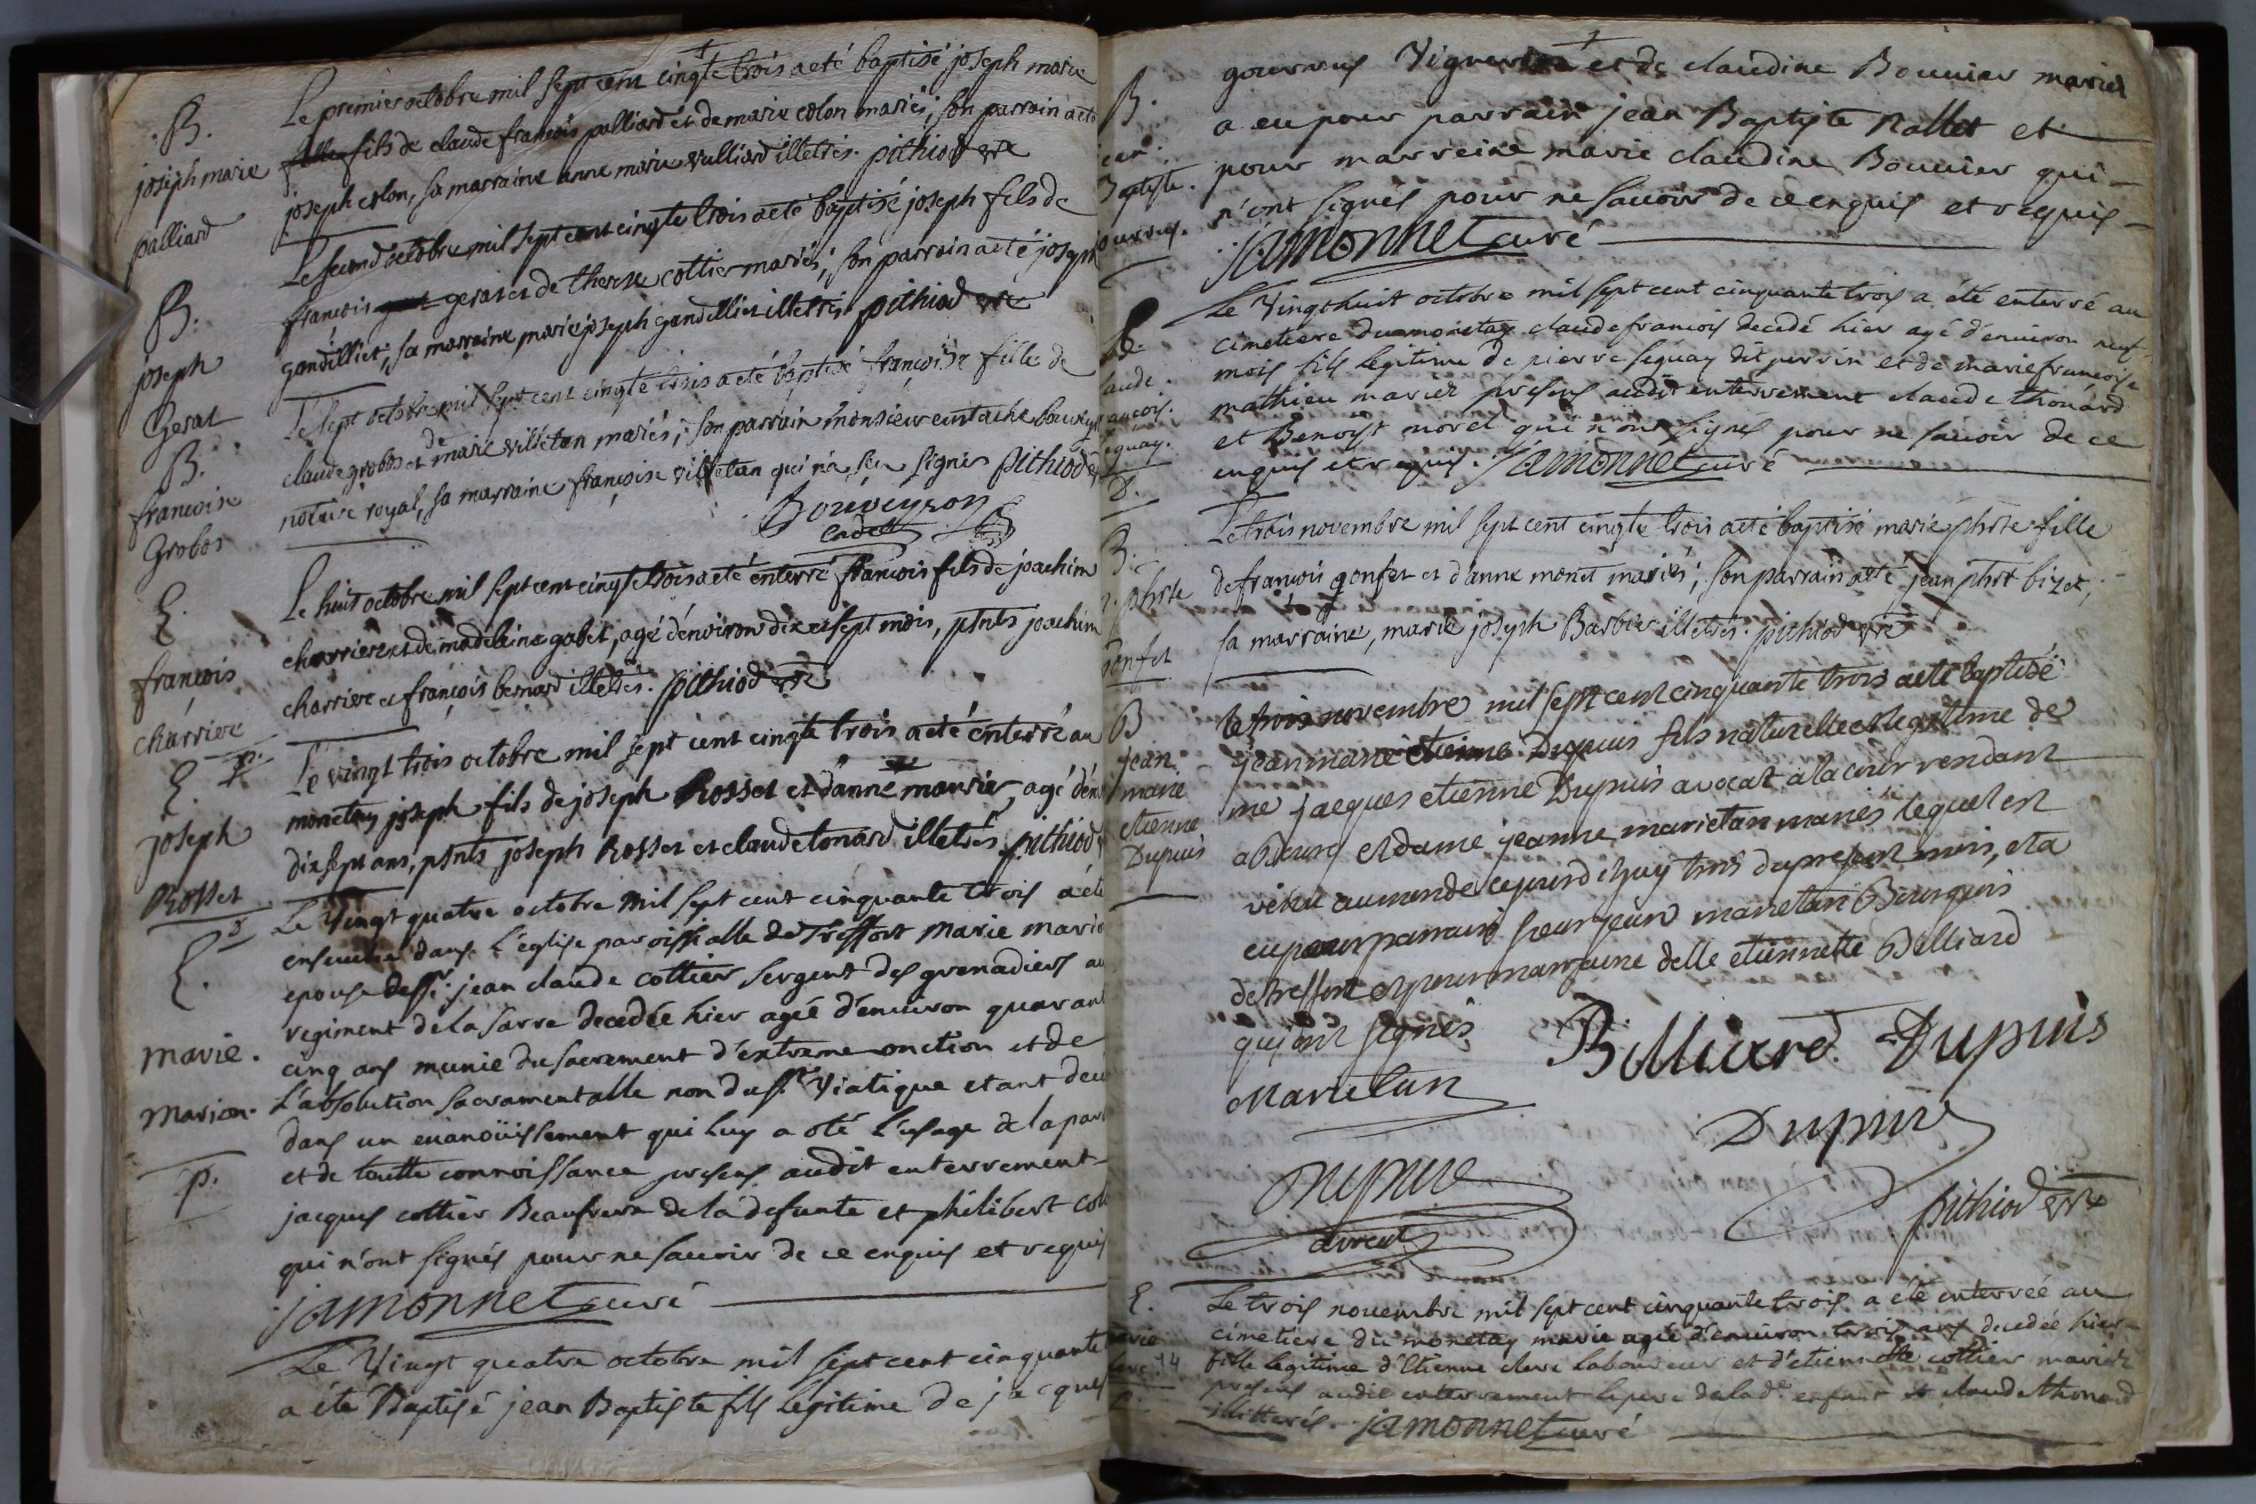 B.
joseph marie
palliard
Le premier octobre mil sept cent cinqte trois a eté baptisé joseph marie
fils de claude françois palliard et de marie colon mariés; son parrain a eté
joseph colon, sa marraine anne marie vulliard illetrés. pithiod vre
B.
joseph
Gerat
Le second octobre mil sept cent cinqte trois a eté baptisé joseph fils de
françois gerat et de therese cottier mariés; son parrain a eté joseph
gandilliet; sa marraine marie joseph gandilliet illetrés pithiod vre
B.
francoise
Grobos
Le sept octobre mil sept cent cinqte trois a eté baptisé françoise fille de
claude grobos et de marie villetan mariés; son parrain monsieur eustache bouveyron
notaire royal, sa marraine françoise villetan qui n'a sçu signer pithiod
Bouveyron
cadet
E.
françois
charriere
p.
Le huit octobre mil sept cent cinqte trois a eté enterré françois fils de joachim
charriere et de madelaine gabet, agé d'environ dix et sept mois, ptnts joachim
charriere et françois bernard illetrés. pithiod vre
E.
joseph
Rosset
Le vingt trois octobre mil sept cent cinqte trois a eté enterré au
monetay joseph fils de joseph Rosset et d'anne mourier, agé d'en
dix sept ans, ptnts joseph Rosset et claude tonard illetrés pithiod
E.
marie.
Marion.
p.
Le Vingt quatre octobre mil sept cent cinquante trois a été
ensevelie dans L'eglise paroissialle de Treffort Marie marion
epouse de sr. jean claude cottier sergent des grenadiers au
regiment de la sarre decedée hier agée d'environ quarant
cinq ans munie du sacrement d'extreme onction et de
L'absolution sacramentalle non du st. Viatique etant
dans un euanoüissement qui luy a oté L'usage de la par
et de toutte connoissance presens audit enterrement
jacques cottier Beaufrere de la defunte et philibert
qui n'ont signés pour ne sauoir de ce enquis et requis
jamonnet curé
Le Vingt quatre octobre mil sept cent cinquante
a été Baptisé jean Baptiste fils legitime de jacques
B.
jean
Baptiste.
gourrus.
gourrus Vigneron et de claudine Bouuier mariés
a eu pour parrain jean Baptiste Rallet et
pour marreine marie claudine Bouuier qui
n'ont signés pour ne sauoir de ce enquis et requis
jamonnet curé
E.
claude
francois.
seguay.
p.
Le Vingt huit octobre mil sept cent cinquante trois a été enterré au
cimetiere du monetay claude francois decedé hier agé d'enuiron neuf
mois fils legitime de pierre seguay dit perrin et de marie francoise
mathieu mariés presens audit enterrement claude thonard
et Benoist morel qui n'ont signés pour ne sauoir de ce
enquis et requis. jamonnet curé
B.
m. phrte
Gonfet
Le trois novembre mil sept cent cinqte trois a eté baptisé marie phrte fille
de françois gonfet et d'anne monet mariés; son parrain a eté jean phrt bizet;
sa marraine, marie joseph Barbier illetrés. pithiod vre
B
jean
marie
etienne
Dupuis
le trois novembre mil sept cent cinquante trois a eté baptisé
jean marie etienne Dupuis fils naturelle et legitime de
me jacques etienne Dupuis avocat a la cour rendant
a Bourg et dame jeanne marietan mariés lequel est
venu au monde cejourd'huy trois du present mois, et a
eu pour parrain sieur jean marietan Bourgeois
de treffort et pour marraine delle etiennette Billiard
qui ont signés
Billiard. Dupuis
Marietan
Dupuis
Dupuis
avocat
pithiod vre
E.
marie
clerc
p.
Le trois nouembre mil sept cent cinquante trois a été enterrée au
cimetiere du monetay marie agée d'enuiron trois ans decedée hier
fille legitime d'Etienne clerc laboureur et d'etiennette cottier mariés
presens audit enterrement le pere de lade. enfant et claude thonard
illitterés. jamonnet curé